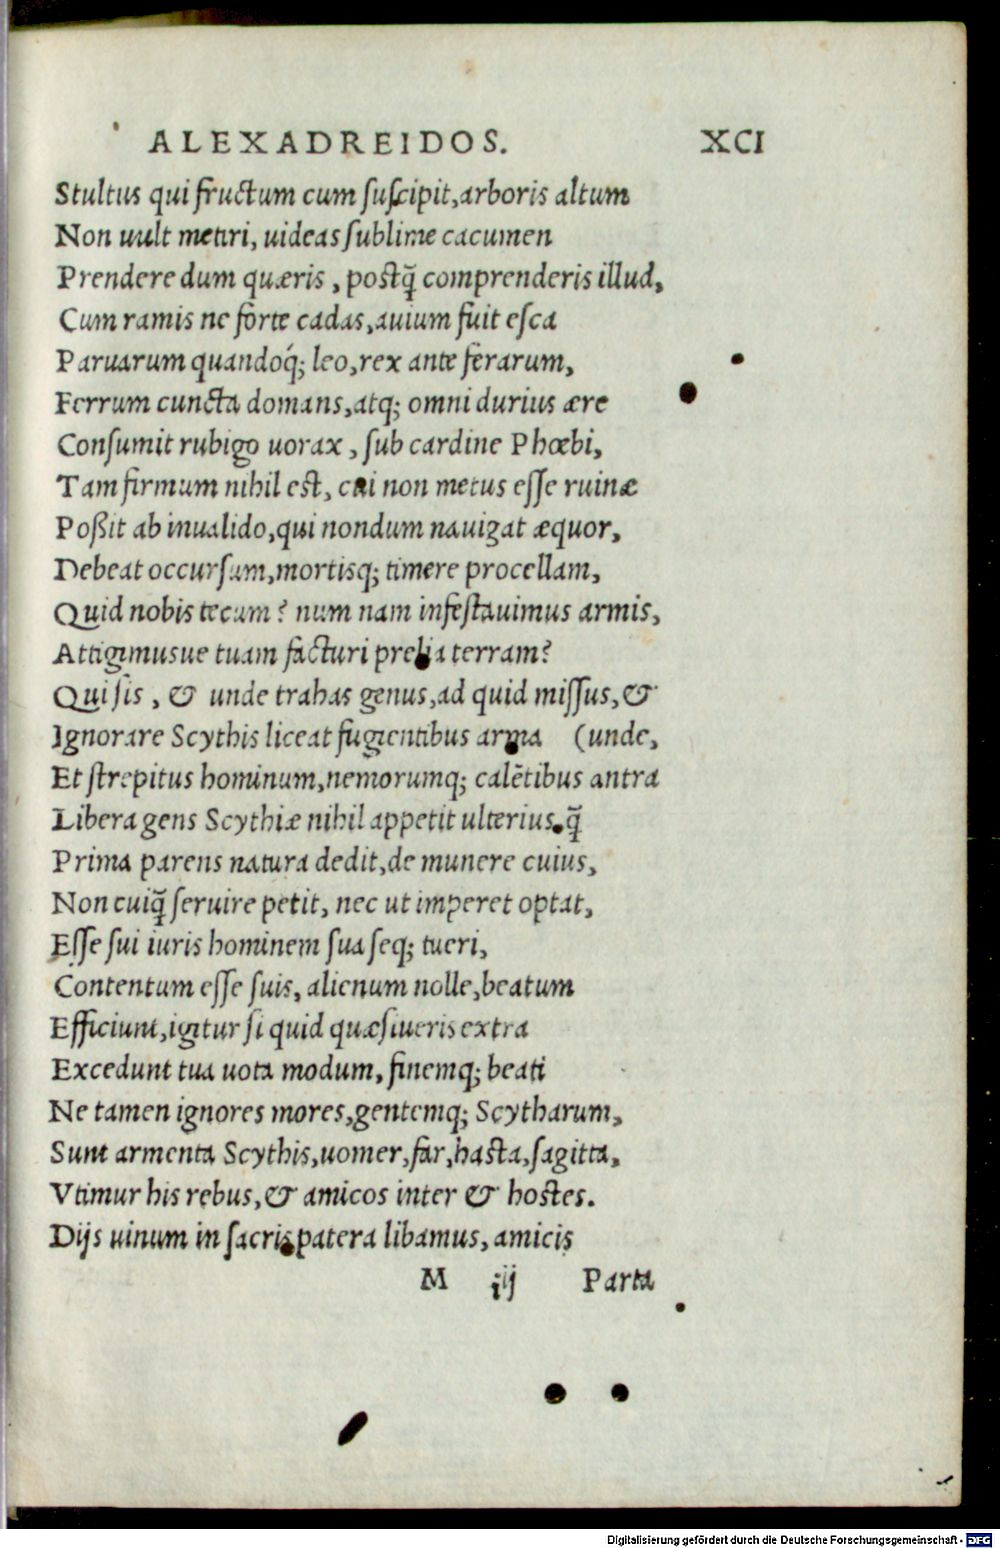 ALEXADREIDOS. XCI
Stultus qui fructum cum suscipit, arboris altum
Non uult metiri, uideas sublime cacumen
Prendere dum quæris, postq̃ comprenderis illud,
Cum ramis ne forte cadas, auium fuit esca
Paruarum quandoq́; leo, rex ante ferarum,
Ferrum cuncta domans, atq; omni durius ære
Consumit rubigo uorax, sub cardine Phœbi,
Tam firmum nihil est, cui non metus esse ruinæ
Poßit ab inualido, qui nondum nauigat æquor,
Debeat occursum, mortisq; timere procellam,
Quid nobis tecum? num nam infestauimus armis,
Attigimusue tuam facturi prelia terram?
Qui sis, & unde trahas genus, ad quid missus, &
Ignorare Scythis liceat fugientibus arma (unde,
Et strepitus hominum, nemorumq; calẽtibus antra
Libera gens Scythiæ nihil appetit ulterius, q̃
Prima parens natura dedit, de munere cuius,
Non cuiq̃ seruire petit, nec ut imperet optat,
Esse sui iuris hominem sua seq; tueri,
Contentum esse suis, alienum nolle, beatum
Efficiunt, igitur si quid quæsiueris extra
Excedunt tua uota modum, finemq; beati
Ne tamen ignores mores, gentemq; Scytharum,
Sunt armenta Scythis, uomer, far, hasta, sagitta,
Vtimur his rebus, & amicos inter & hostes.
Dijs uinum in sacris patera libamus, amicis
M iij Parta
Digitalisierung gefördert durch die Deutsche Forschungsgemeinschaft - DFG